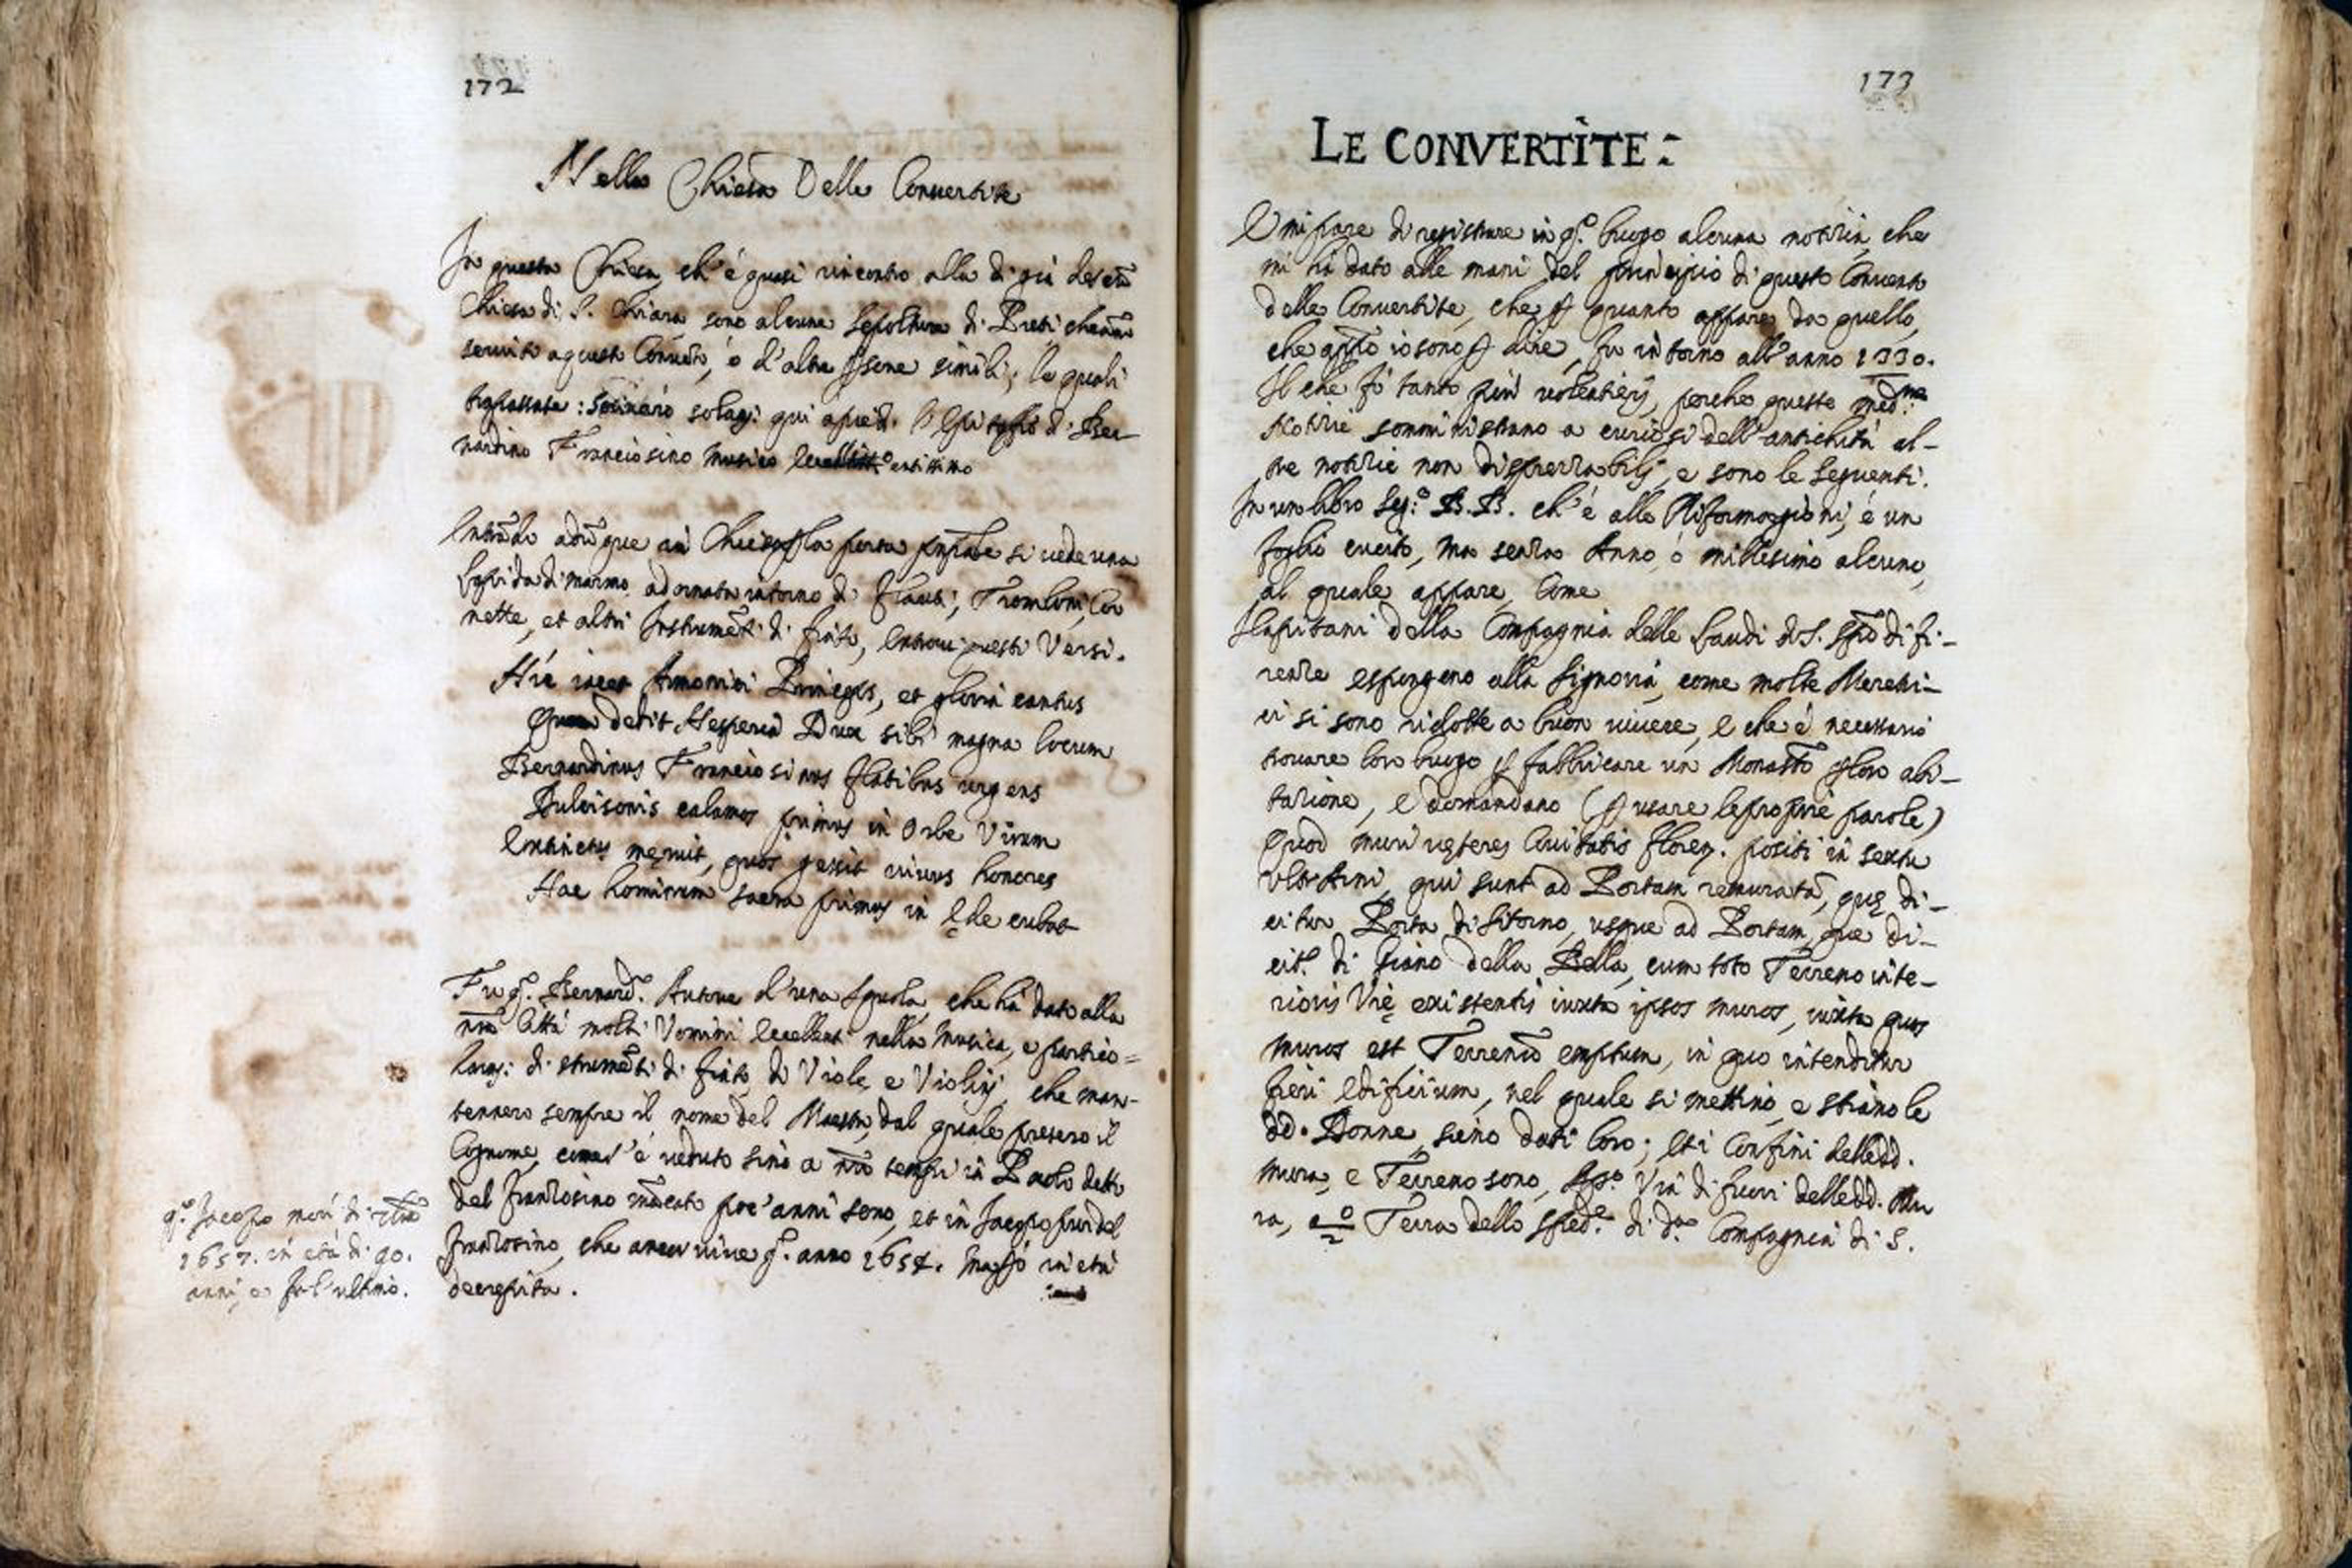 172
Nella Chiesa Delle Convertite
In questa Chiesa, ch'è quasi rincontro alla di già descrã
Chiesa di S. Chiara sono alcune sepolture di Preti, che
servito a questo Convẽto, e d'altre psone simili; le quali
solagi: qui apiedi l'Epitaffio di Ber-
nardino Franciosino Musico Eccell entissimo
Entrãdo adũque in Chiesa p la porta si vede una
lapida di marmo adornata intorno di flauti, Tromboni, Cor
nette, et altri Instrumẽti di fiato, entrovi questi Versi.
Hic iacet Armonici Princeps, et gloria cantus
Quem dedit Hesperia Dux sibi magna locum
Bernardinus Franciosinus flatibus urgens
Dulcisonis calamos primus in Orbe Virum
Extinctus meruit, quos gessit vivus honores
Hac hominum sacra primus in Ęde cubat
Fu q.º Bernard.º Autore d'una scuola, che ha dato alla
nrã Città molti Uomini Eccellenti nella Musica, e partico=
larm: di strumẽti di fiato, di Viole, e Violini, che man-
tennero sempre il nome del Maestro, dal quale presero il
Cognome, come s'è veduto sino a nrĩ tempi in Paolo detto
del franzosino mãcato poc'anni sono, et in Jacopo pur del
franzosino, che ancor vive q.º anno 1654. ma in età
decrepita.
q.º Jacopo morì di
1657. in età di 90.
anni, e fu l'ultimo.
173
LE CONVERTITE:
E mi pare di registrare in q.º luogo alcuna notizia, che
mi hà dato alle mani del principio di questo Convento
delle Convertite, che p quanto appare da quello,
che io sono p dire, fu intorno all'anno 1330.
Il che fò tanto più volentierj, perche queste med:me
Notizie somministrano a curiosi dell'antichità al-
tre notizie non disprezzabilj, e sono le seguenti.
In un libro seg:º B.B. ch'è alle Riformagioni, è un
foglio cucito, ma senza Anno, ò millesimo alcuno,
al quale appare, Come
I Capitani della Compagnia delle Laudi di S. Spõ di fi-
renze espongono alla Signoria, come molte Meretri-
ci si sono ridotte a buon vivere, e che è necessario
trovare loro luogo p fabbricare un Monastõ p loro abi-
tazione, e domandano (p usare le proprie parole)
Quod muri veteres Civitatis floren. positi in sextu
Ultrarni, qui sunt ad Portam remuratã, quę di-
citur Porta di fitorno, usque ad Portam, que di-
cit.r di Giano della Bella, cum toto Terreno inte-
rioris Vię existentis iuxta ipsos muros, iuxta quos
muros est Terrenũ emptum, in quo intenditur
fieri Edificium, nel quale si mettino, e stiano le
dd. Donne, sieno dati loro; et i Confini delledd.
mura, e Terreno sono, Pº. Via di fuori delledd. Mu
ra, 2º Terra dello sped.e di d.a Compagnia di S.